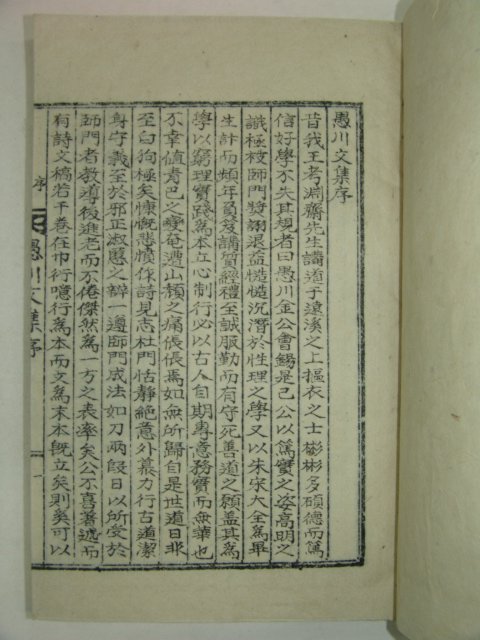 愚川文集序
昔我王考淵齋先生講道于遠溪之上摳衣之士彬彬多碩德而篤
信好學不失其規者曰愚川金公會錫是已公以篤實之姿高明之
識極被師門奬詡退益慥慥沉潛於性理之學又以朱宋大全爲畢
生計而頻年負笈講質經禮至誠服勤而有守死善道之願蓋其爲
學以窮理實踐爲本立心制行必以古人自期專意務實而無華也
不幸値靑巳之變奄遭山頹之痛倀倀焉如無所歸自是世道日非
至白狗極矣慷慨悲憤作詩見志杜門恬靜絶意外慕力行古道潔
身守義至於邪正淑慝之辯一遵師門成法如刀兩段日以所受於
師門者敎導後進老而不倦傑然爲一方之表率矣公不喜著述而
有詩文稿若干卷在巾行噫行爲本而文爲末本旣立矣則矣可以
序
愚川文集序
一